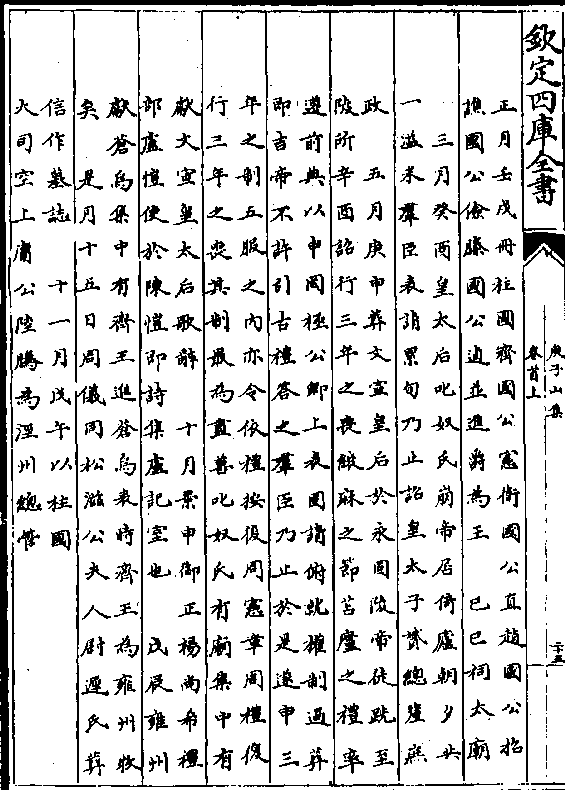 欽定四庫全書
庾子山集
卷首上
二十五
正月壬戌冊柱國齊國公憲衛國公直趙國公招
譙國公儉滕國公逌並進爵為王　己巳祠太廟
三月癸酉皇太后叱奴氏崩帝居倚廬朝夕共
一溢米羣臣表請累旬乃止詔皇太子贇總釐庶
政　五月庚申葬文宣皇后於永固陵帝徒跣至
陵所辛酉詔行三年之喪縗麻之節苫廬之禮率
遵前典以申罔極公卿上表固請俯就權制過葬
即吉帝不許引古禮答之羣臣乃止於是遂申三
年之制五服之內亦令依禮按後周憲章周禮復
行三年之喪其制最為盡善叱奴氏有廟集中有
獻文宣皇太后歌辭　十月景申御正楊尚希禮
部盧愷使於陳愷即詩集盧記室也　戊辰雍州
獻蒼烏集中有齊王進蒼烏表時齊王為雍州牧
矣　是月十五日周儀同松滋公夫人尉遲氏葬
信作墓誌　十一月戊午以柱國
大司空上庸公陸騰為涇州總管